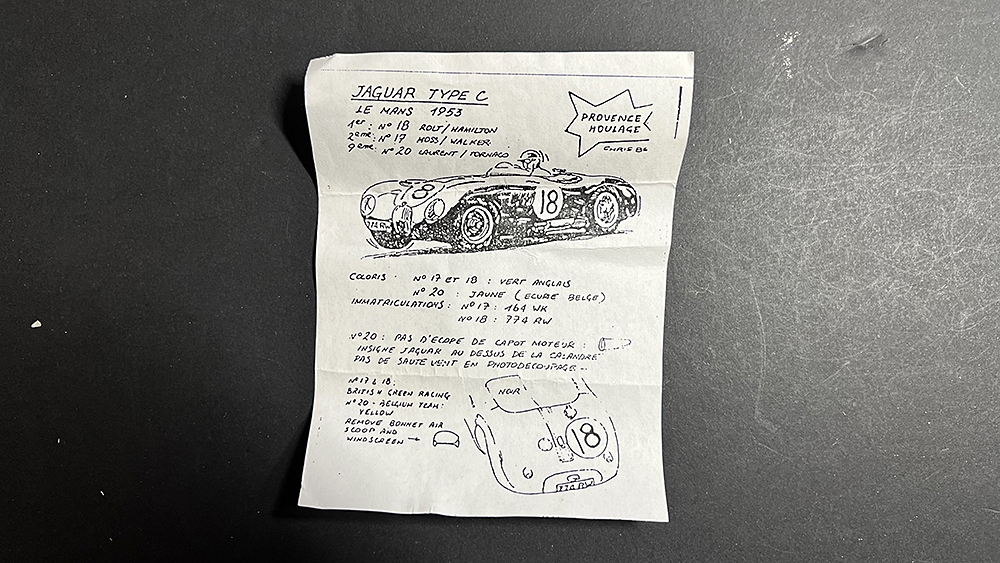 JAGUAR TYPE C
LE MANS 1953
1er : No 18 ROLT/HAMILTON
2ème: No 17 MOSS/WALKER
9ème: No 20 LAURENT/TORNACO
PROVENCE
MOULAGE
8
18
774 RW
COLORIS : No 17 ET 18 : VERT ANGLAIS
No 20 : JAUNE (ECURE BELGE)
IMMATRICULATIONS : No 17 : 164 WK
No 18 : 774 RW
No 20 : PAS D'ECOPE DE CAPOT MOTEUR :
INSIGNE JAGUAR AU DESSUS DE LA CALANDRE
PAS DE SAUTE VENT EN PHOTODECOUPAGE --
No 17 & 18 :
BRITISH GREEN RACING
No 20 - BELGIUM TEAM :
YELLOW
REMOVE BONNET AIR
SCOOP AND
WINDSCREEN →
NOIR
18
774 RW